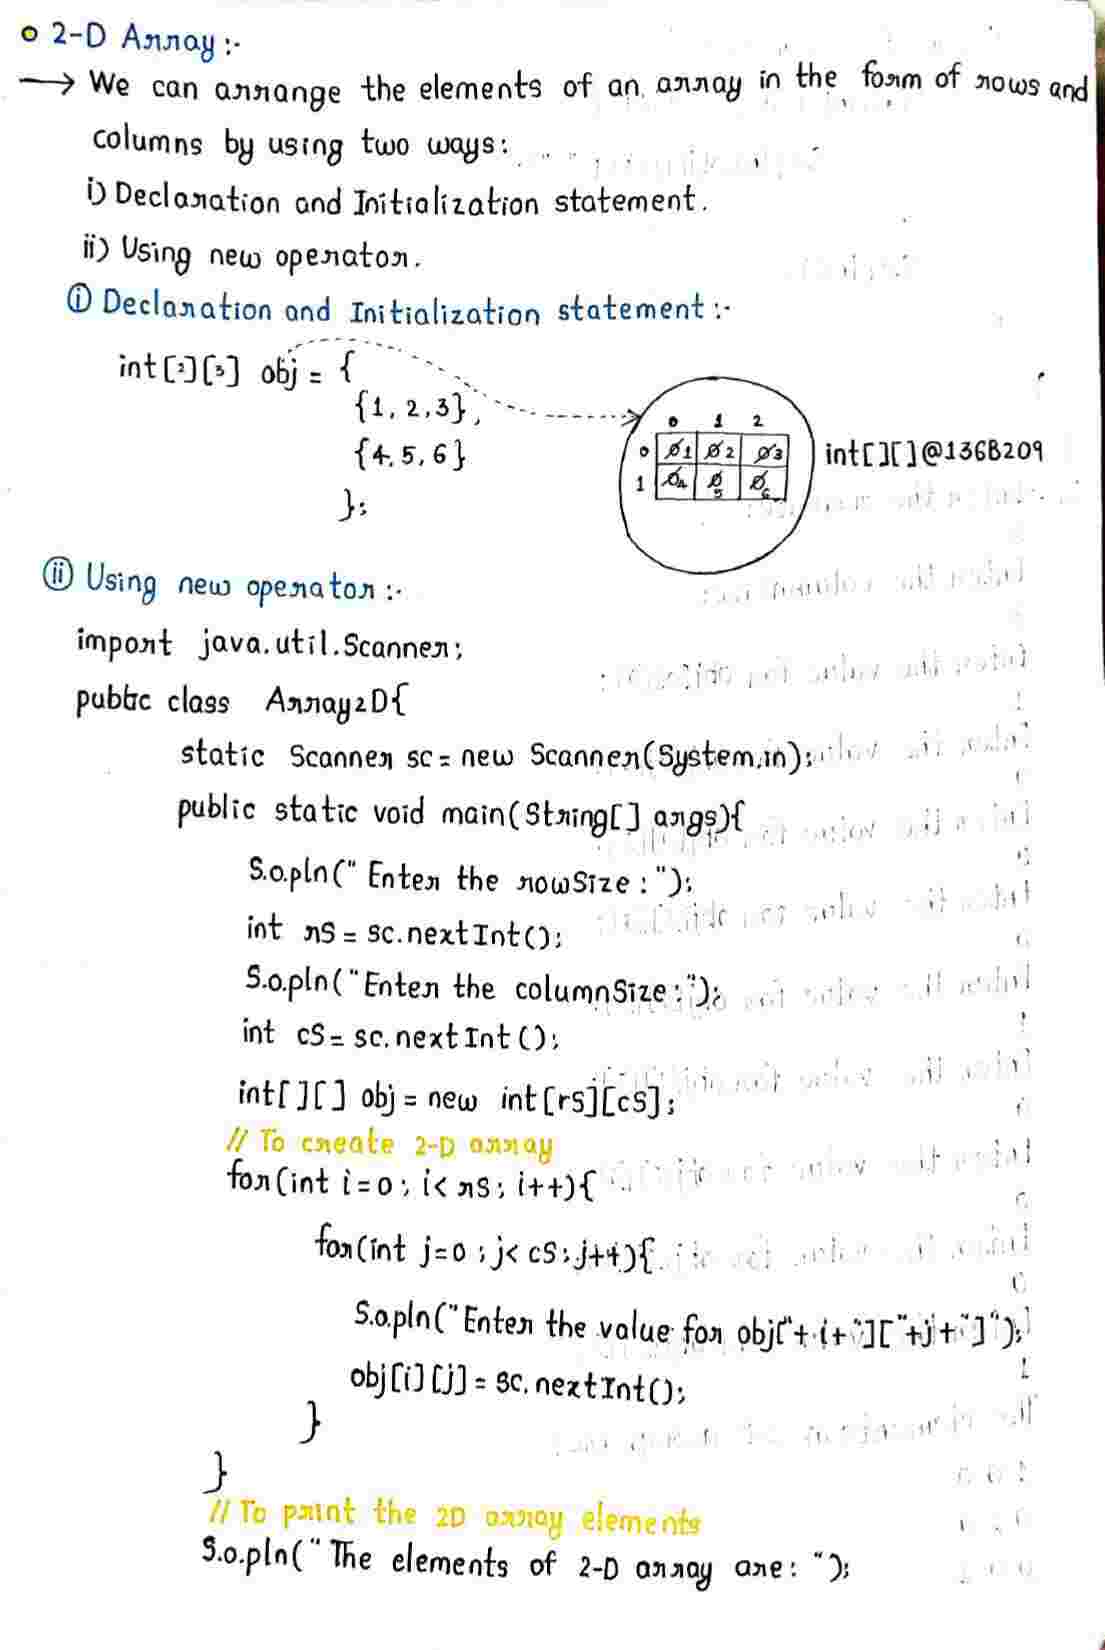 2-D Array :-
→ We can arrange the elements of an array in the form of rows and
columns by using two ways:
i) Declaration and Initialization statement.
ii) Using new operator.
(i) Declaration and Initialization statement :-
int[2][3] obj = {
{1, 2, 3},
{4, 5, 6}
};
0 1 2
0 0 1 0 2 0 3
1 0 4 0 5 0 6
int[][]@136B209
(ii) Using new operator :-
import java.util.Scanner;
public class Array2D{
static Scanner sc = new Scanner(System.in);
public static void main(String[] args){
S.o.pln(" Enter the rowSize : ");
int rS = sc.nextInt();
S.o.pln("Enter the columnSize :");
int cS = sc.nextInt();
int[][] obj = new int[rS][cS];
// To create 2-D array
for(int i=0; i< rS; i++){
for(int j=0; j< cS; j++){
S.o.pln("Enter the value for obj["+i+"]["+j+"]");
obj[i][j] = sc.nextInt();
}
}
// To print the 2D array elements
S.o.pln(" The elements of 2-D array are: ");